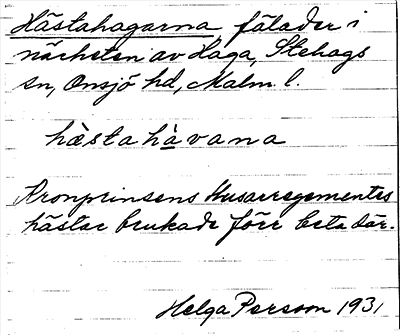 Hästahagarna, fälader i
närheten av Haga, Stehags
sn, Onsjö hd, Malm. l.
hæ̀stahàvana
Kronprinsens Husarregementes
hästar brukade förr beta där.
Helga Persson 1931